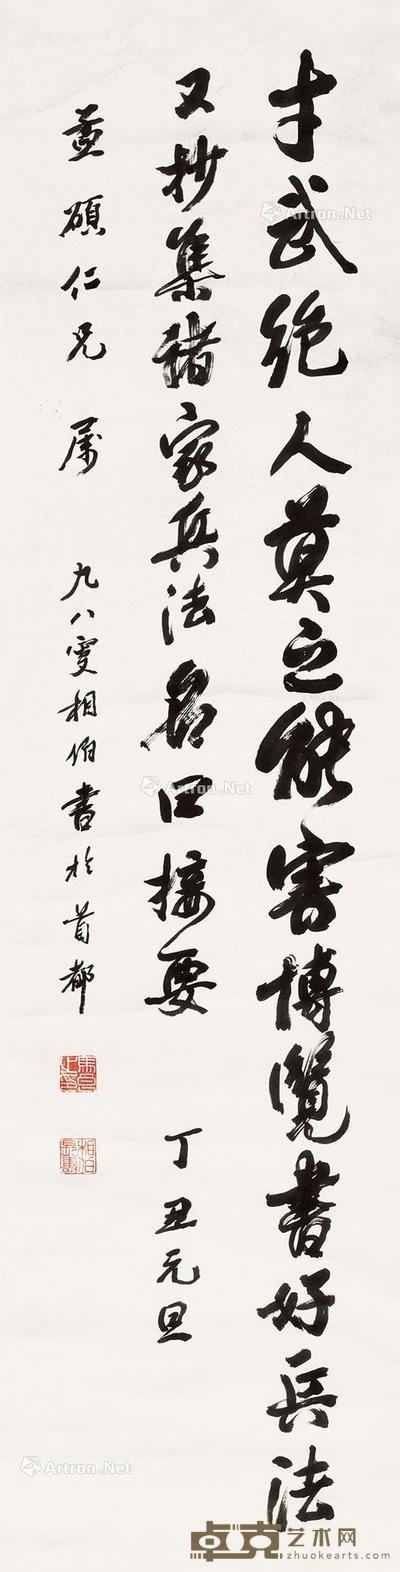 才武绝人莫之能害博览书好兵法
又抄集诸家兵法名曰接要 丁丑元旦
硕仁兄属 九八叟相伯书於首都
相伯
Artron.Net
Artron.Net
Artron.Net
Artron.Net
Artron.Net
卓克艺术网
zhuokearts.com